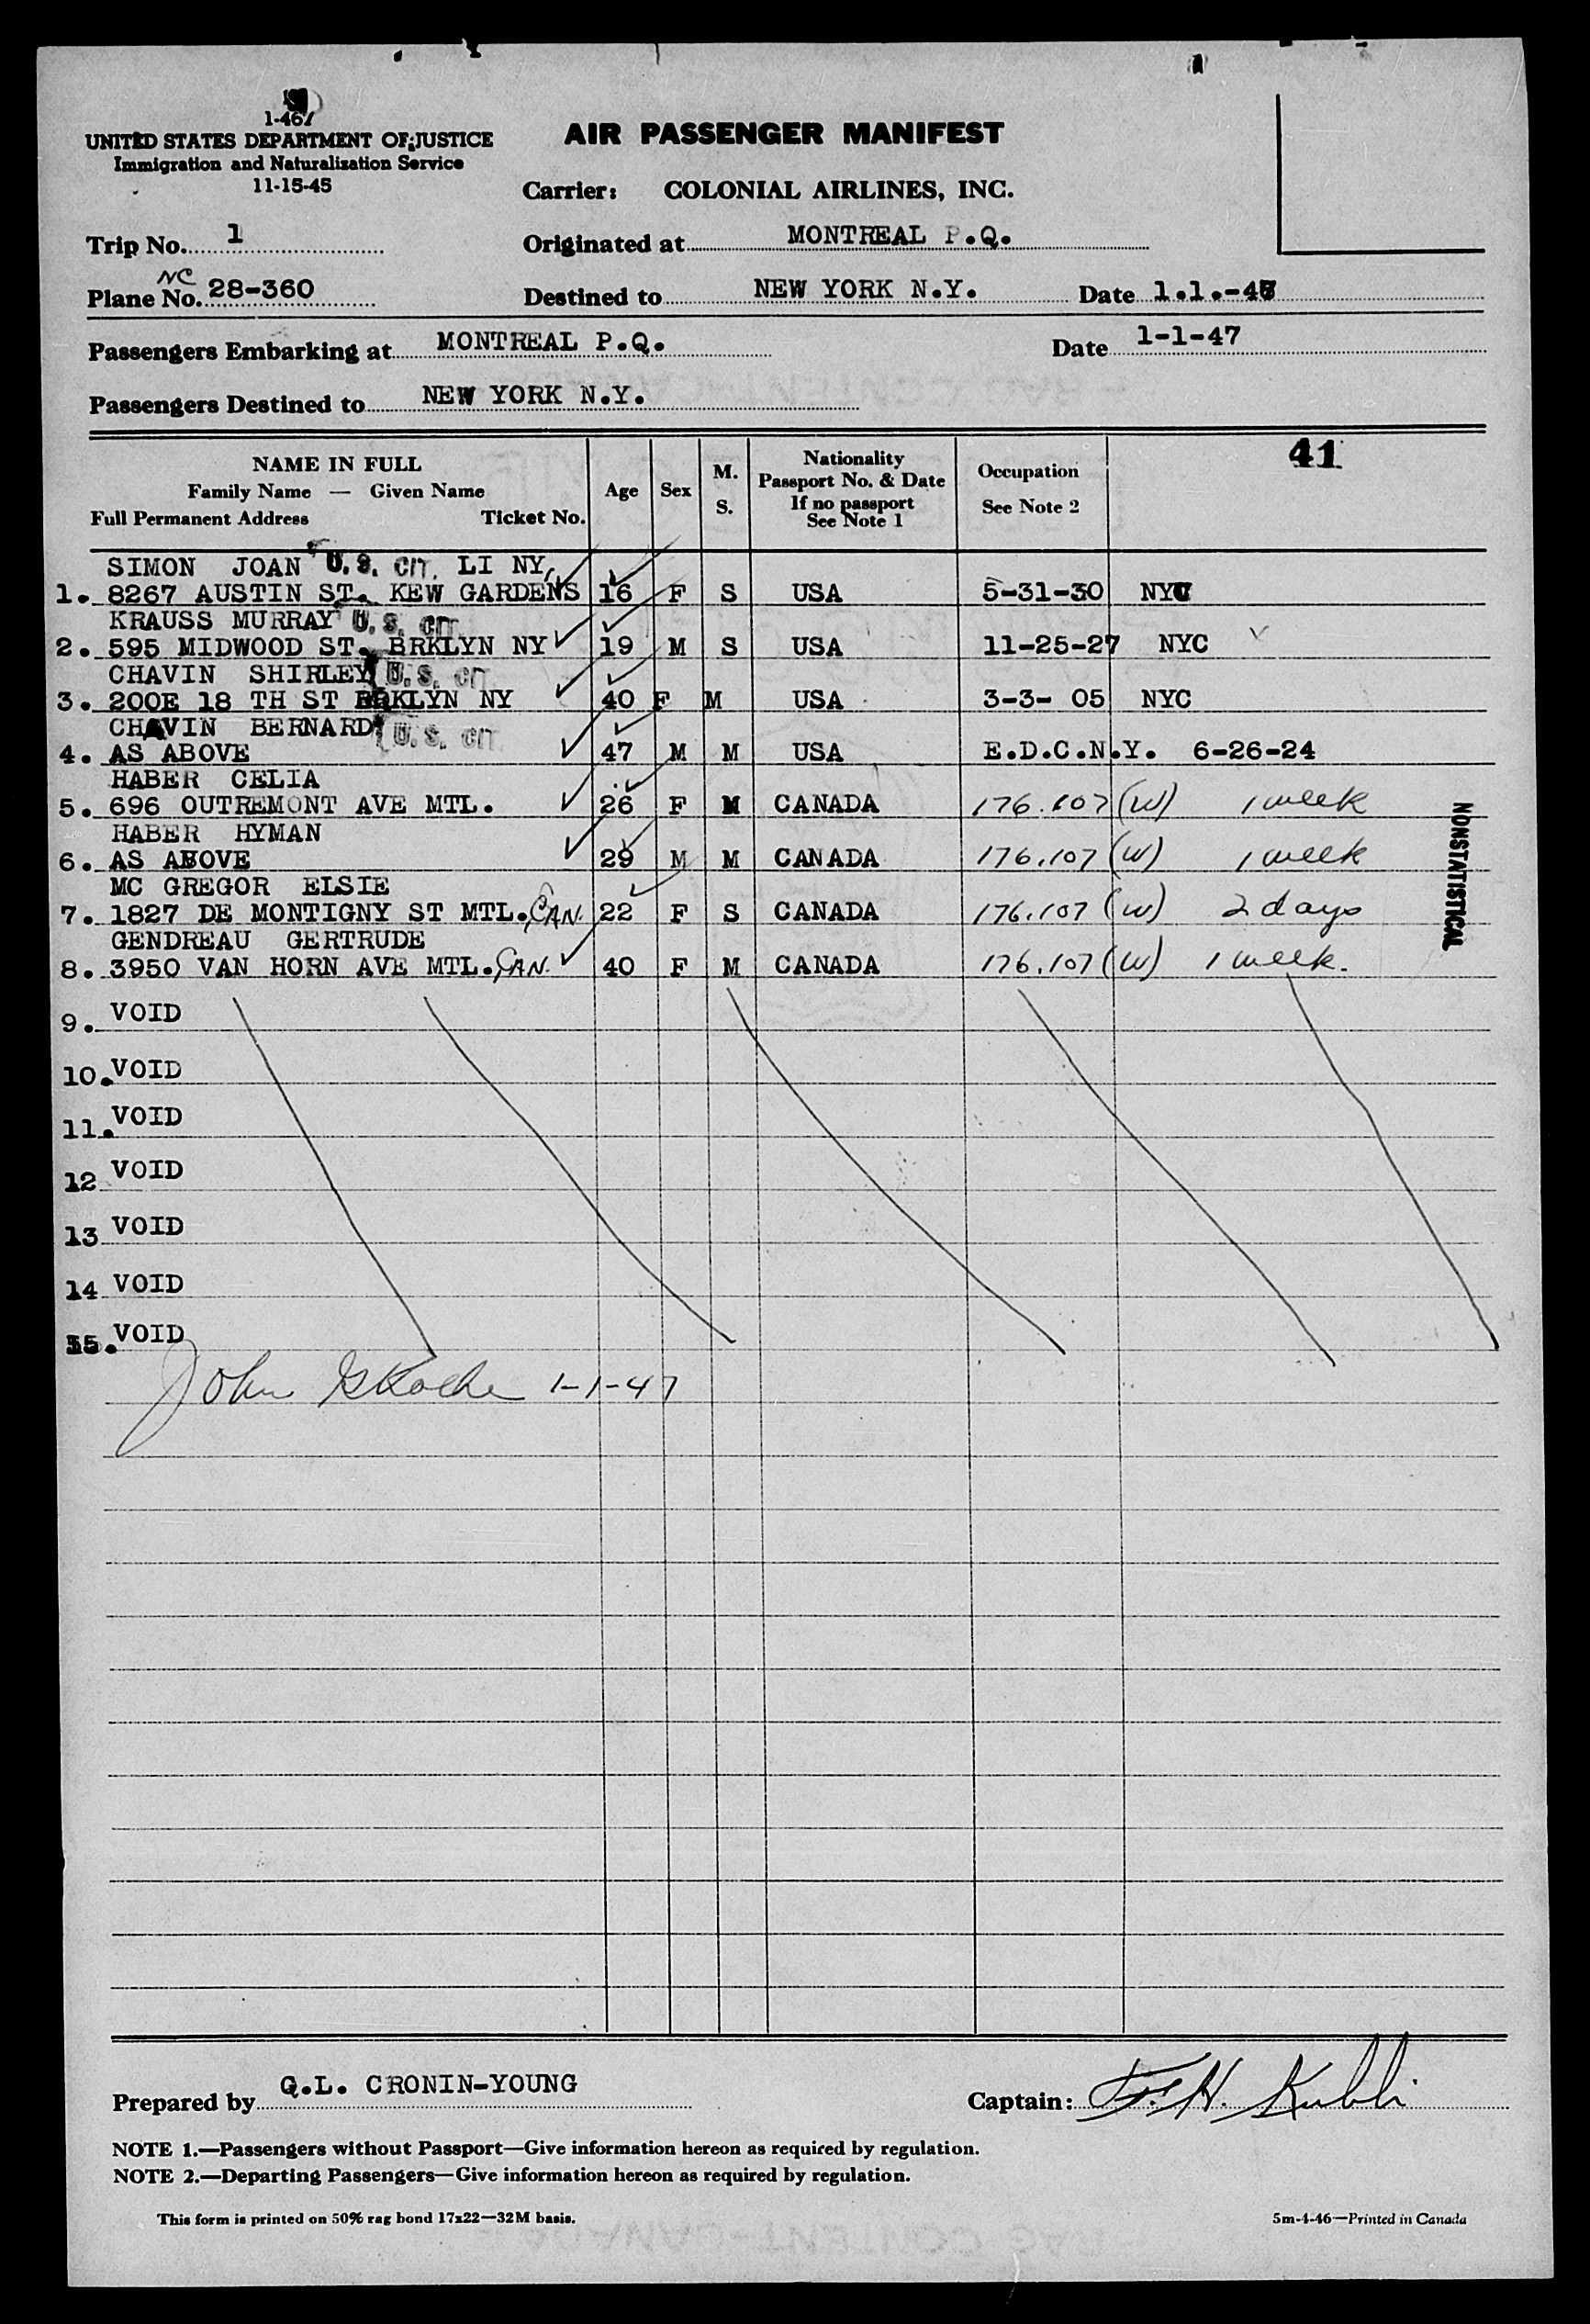 1-467
UNITED STATES DEPARTMENT OF JUSTICE
Immigration and Naturalization Service
11-15-45
AIR PASSENGER MANIFEST
Carrier: COLONIAL AIRLINES, INC.
Trip No. 1
Originated at MONTREAL P.Q.
NC
Plane No. 28-360
Destined to NEW YORK N.Y. Date 1.1.-47
Passengers Embarking at MONTREAL P.Q. Date 1-1-47
Passengers Destined to NEW YORK N.Y.
41
NAME IN FULL
Family Name — Given Name
Full Permanent Address Ticket No.
Age
Sex
M.
S.
Nationality
Passport No. & Date
If no passport
See Note 1
Occupation
See Note 2
SIMON JOAN U.S. CIT. LI NY,
1. 8267 AUSTIN ST. KEW GARDENS 16 F S USA 5-31-30 NYC
KRAUSS MURRAY U.S. CIT.
2. 595 MIDWOOD ST. BRKLYN NY 19 M S USA 11-25-27 NYC
CHAVIN SHIRLEY U.S. CIT.
3. 200E 18 TH ST BRKLYN NY 40 F M USA 3-3- 05 NYC
CHAVIN BERNARD U.S. CIT.
4. AS ABOVE 47 M M USA E.D.C.N.Y. 6-26-24
HABER CELIA
5. 696 OUTREMONT AVE MTL. 26 F M CANADA 176.107 (W) 1 week
HABER HYMAN
6. AS ABOVE 29 M M CANADA 176.107 (W) 1 week
MC GREGOR ELSIE
7. 1827 DE MONTIGNY ST MTL. CAN. 22 F S CANADA 176.107 (W) 2 days
GENDREAU GERTRUDE
8. 3950 VAN HORN AVE MTL. CAN. 40 F M CANADA 176.107 (W) 1 week.
NONSTATISTICAL
9. VOID
10. VOID
11. VOID
12 VOID
13 VOID
14 VOID
15. VOID
John 1-1-47
Prepared by G.L. CRONIN-YOUNG
Captain: F.H. Kubli
NOTE 1.—Passengers without Passport—Give information hereon as required by regulation.
NOTE 2.—Departing Passengers—Give information hereon as required by regulation.
This form is printed on 50% rag bond 17x22—32M basis.
5m-4-46—Printed in Canada